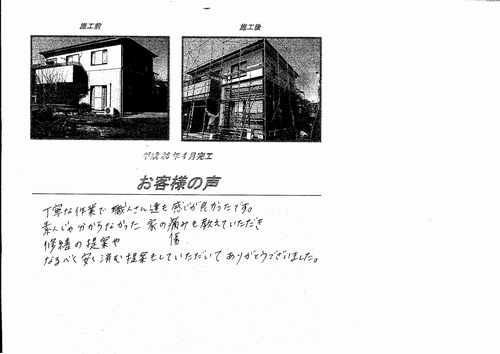 施工前
施工後
平成26年4月完工
お客様の声
丁寧な作業で職人さん達も感じが良かったです。
素人じゃ分からなかった家の痛みも教えていただき
傷
修繕の提案や
なるべく安く済む提案もしていただいてありがとうございました。